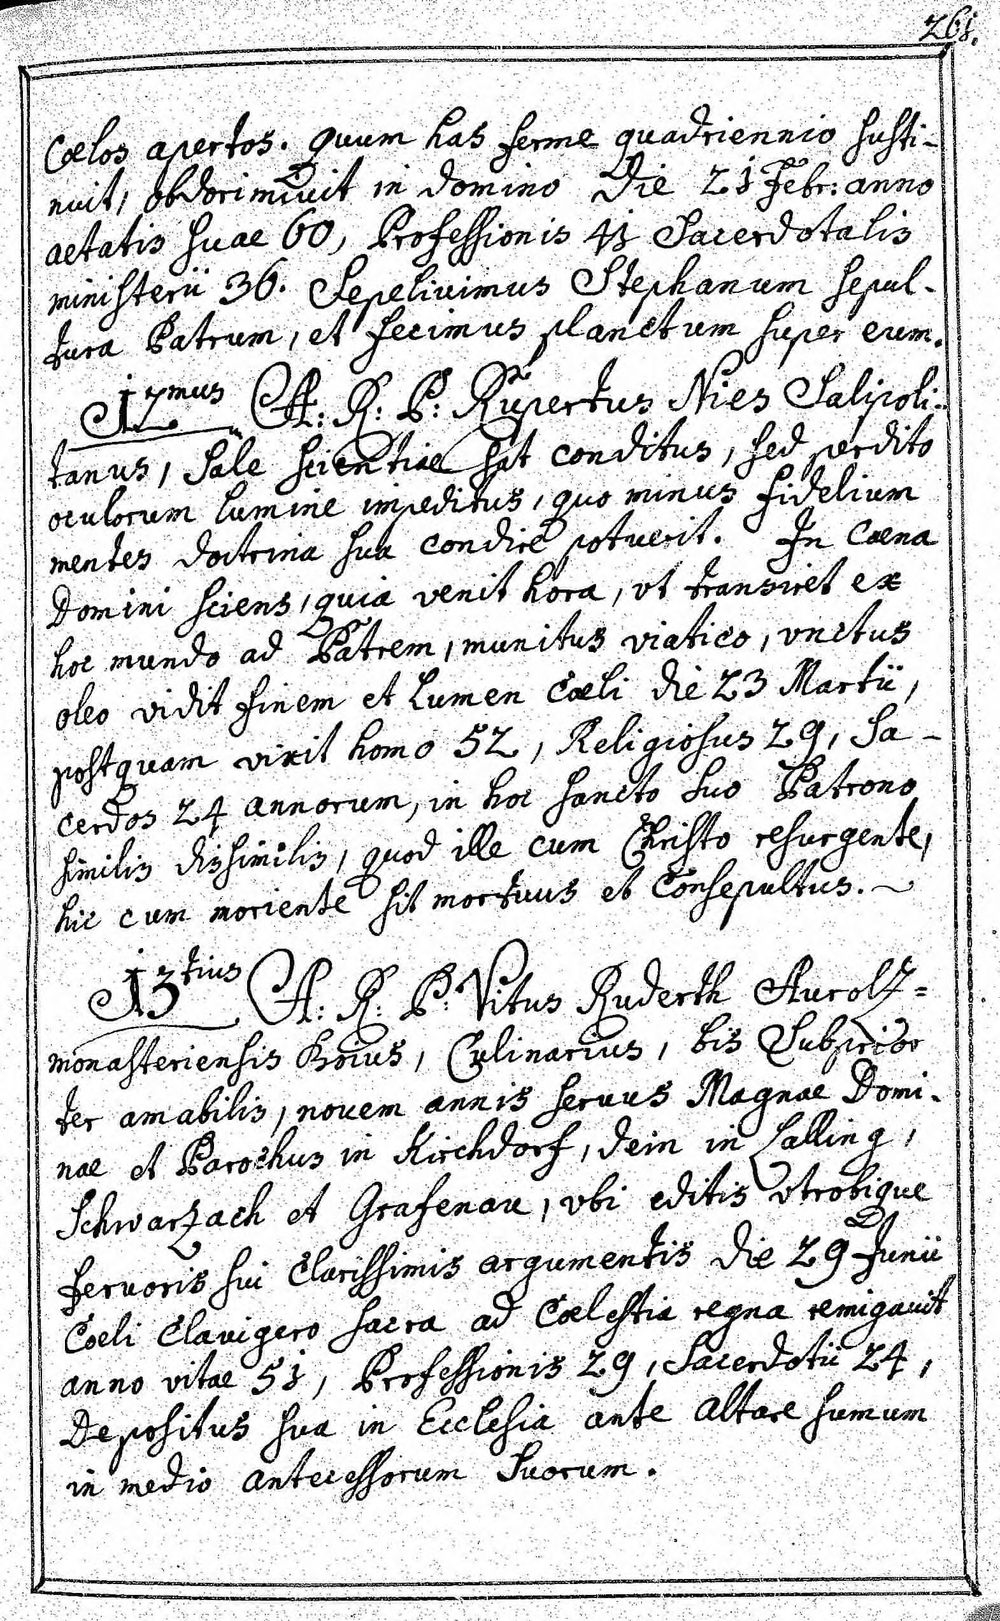 261.
Coelos apertos. Quum has ferme quadriennio susti-
nuit, obdormiuit in domino Die 21 Febr: anno
aetatis suae 60, Professionis 41 Sacerdotalis
ministerii 36. Sepeliuimus Stephanum sepul-
tura Patrum, et fecimus planctum super eum.
12mus A: R: P: Rupertus Nies Salipoli-
tanus, Sale scientiae sat conditus, sed perdito
oculorum lumine impeditus, quo minus fidelium
mentes doctrina sua condire potuerit. In Coena
Domini sciens, quia venit hora, vt transiret ex
hoc mundo ad Patrem, munitus viatico, vnctus
oleo vidit finem et Lumen Coeli die 23 Martii,
postquam vixit homo 52, Religiosus 29, Sa-
cerdos 24 annorum, in hoc sancto suo Patrono
similis dissimilis, quod ille cum Christo resurgente,
hic cum moriente sit mortuus et Consepultus.
13tius A: R: P: Vitus Ruderth Aurolz=
monasteriensis Boius, Culinarius, bis Subprior
ter amabilis, nouem annis seruus Magnae Domi-
nae et Parochus in Kirchdorf, dein in Lalling,
Schwarzach et Grafenau, vbi editis vtrobique
feruoris sui Clarissimis argumentis die 29 Junii
Coeli Clauigero sacra ad Coelestia regna remigauit
anno vitae 51, Professionis 29, Sacerdotii 24,
Depositus sua in Ecclesia ante Altare sumum
in medio antecessorum Suorum.